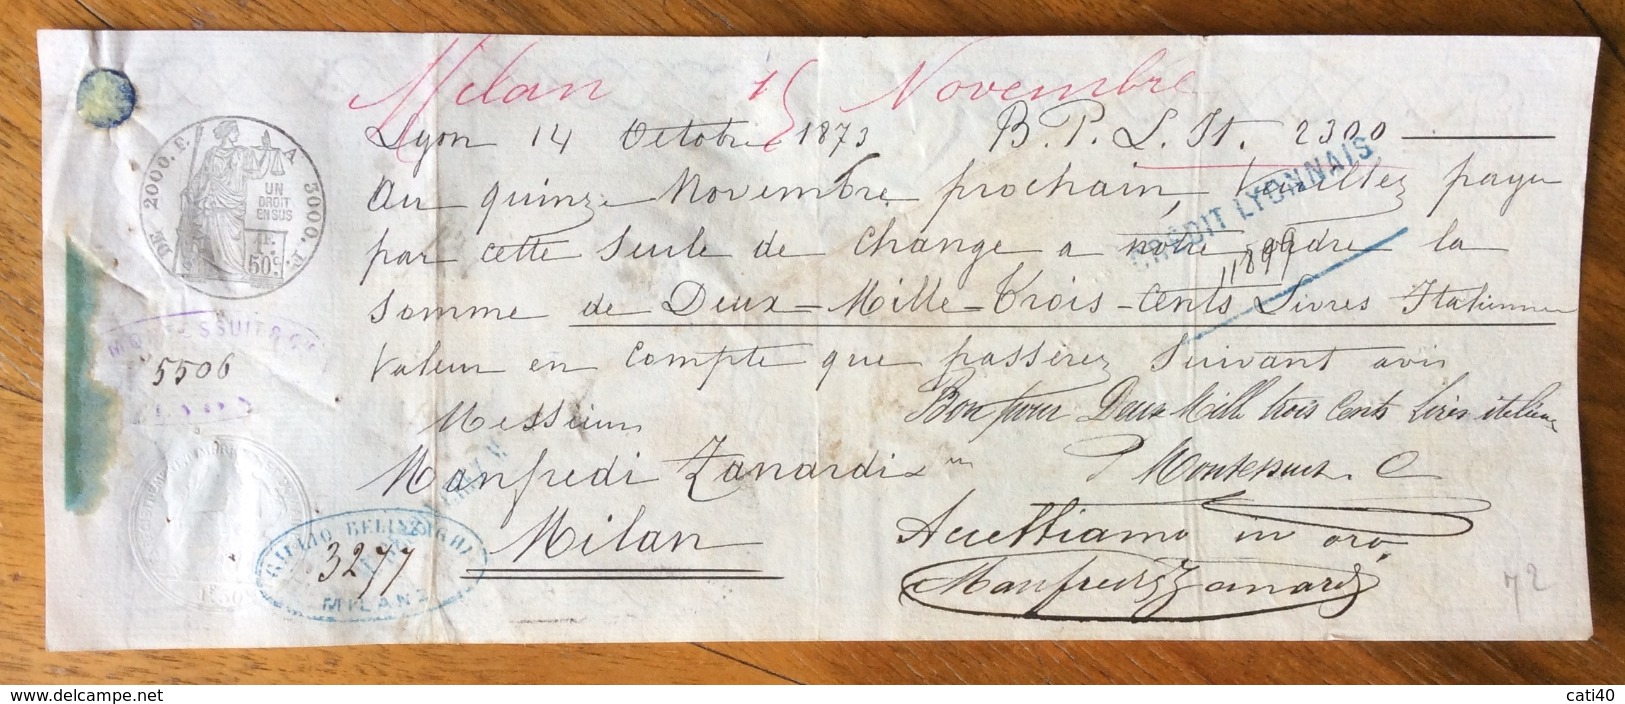 Milan 15 Novembre
Lyon 14 Octobre 1873 B. P. L. It. 2300
Au quinze Novembre prochain, Veuillez payer
par cette Seule de Change a notre ordre la
Somme de Deux=Mille-Trois-Cents Livres Italiennes
Valeur en Compte que passerez Suivant avis
Messieurs
Manfredi Zanardi
Milan
Bon pour Deux Mille trois Cents Livres italiennes
Accettiamo in oro,
Manfredi Zanardi
CRÉDIT LYONNAIS
11899
DE 2000. F. A 3000. F.
UN
DROIT
EN SUS
1F.
50c.
SSUIT & C
5506
GIULIO BELINZAGHI
3277
MILANO
72
cati40